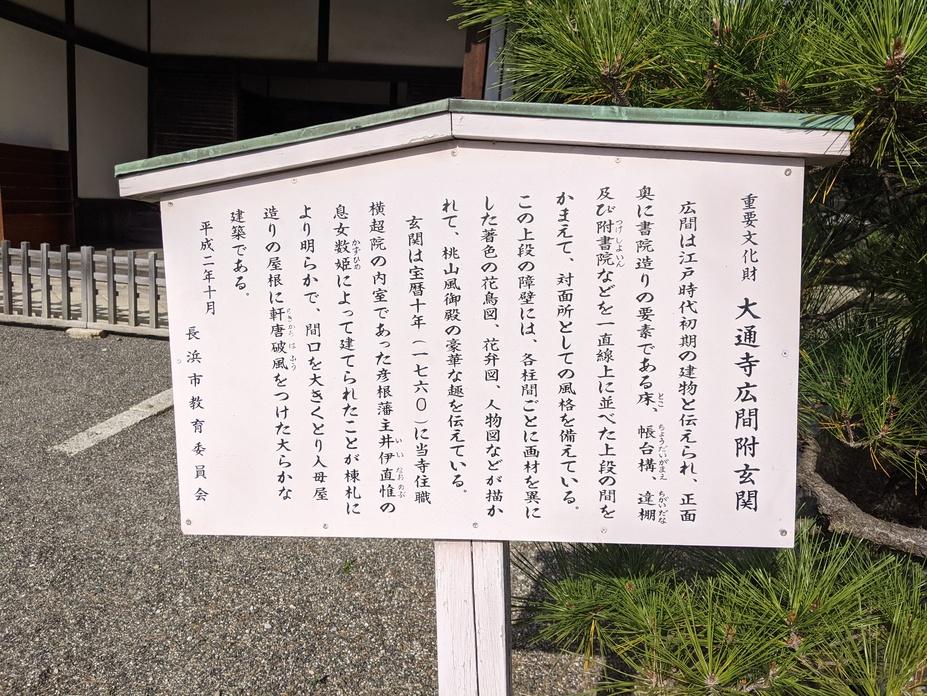 重要文化財 大通寺広間附玄関
広間は江戸時代初期の建物と伝えられ、正面
奥に書院造りの要素である床、帳台構、違棚
及び附書院などを一直線上に並べた上段の間を
かまえて、対面所としての風格を備えている。
この上段の障壁には、各柱間ごとに画材を異に
した著色の花鳥図、花弁図、人物図などが描か
れて、桃山風御殿の豪華な趣を伝えている。
玄関は宝暦十年（一七六〇）に当寺住職
横超院の内室であった彦根藩主井伊直惟の
息女数姫によって建てられたことが棟札に
より明らかで、間口を大きくとり入母屋
造りの屋根に軒唐破風をつけた大らかな
建築である。
平成二年十月 長浜市教育委員会